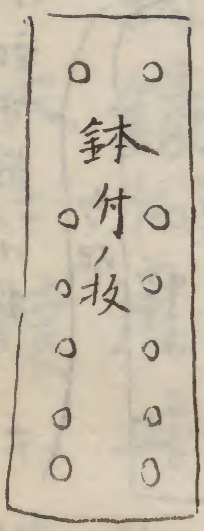 鉢付ノ板